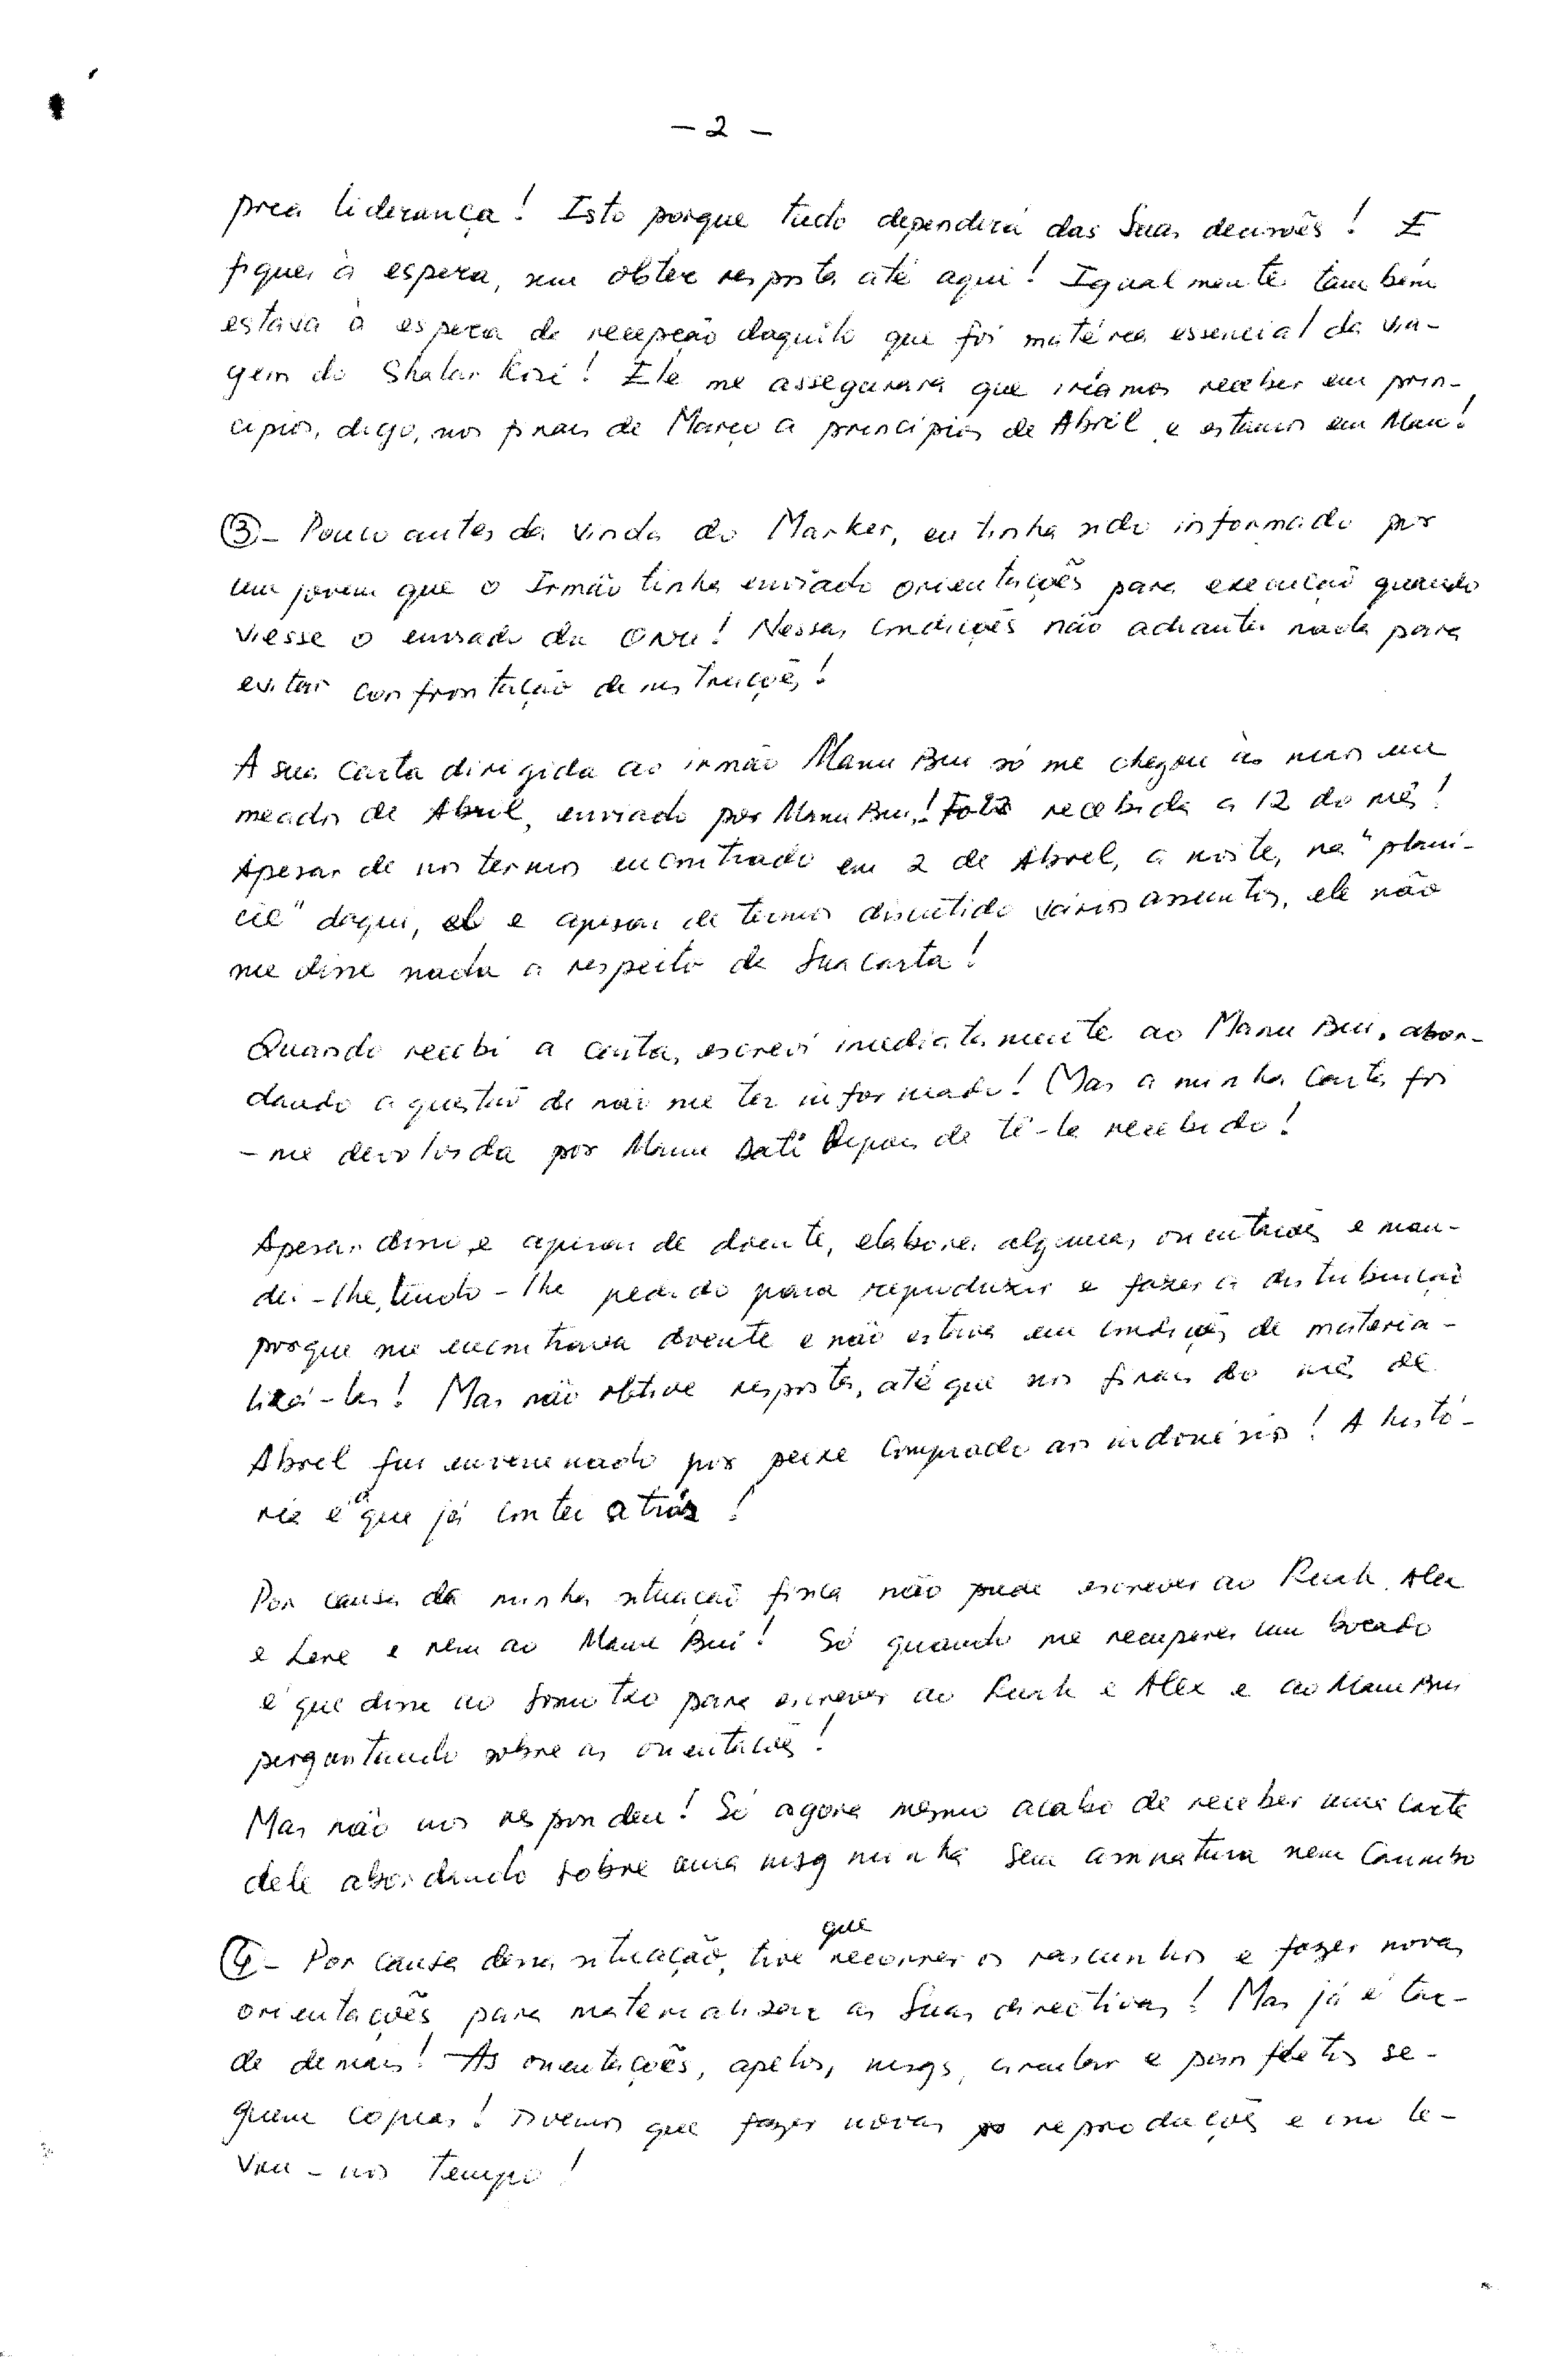 - 2 -
prea liderança! Isto porque tudo dependerá das Suas decisões! E
fiquei à espera, sem obter resposta até aqui! Igualmente também
estava à espera de recepção daquilo que foi matérea essencial da via-
gem do Shalar Kosi! Ele me assegurara que iríamos receber em prin-
cipios, digo, nos finais de Março a princípios de Abril e estamos em Maio!
③- Pouco antes da vinda do Marker, eu tinha sido informado por
um jovem que o Irmão tinha enviado orientações para execução quando
viesse o enviado da ONU! Nessas condições não adianta nada para
evitar confrontação de instruções!
A sua carta dirigida ao irmão Manu Bui só me chegou às mãos em
meados de Abril, enviado por Manu Bui! Foi recebida a 12 do mês!
Apesar de nos termos encontrado em 2 de Abril, a noite, na "planí-
cie" daqui, e apesar de termos discutido vários assuntos, ele não
me disse nada a respeito de Sua carta!
Quando recebi a carta, escrevi imediatamente ao Manu Bui, abor-
dando a questão de não me ter informado! Mas a minha carta foi
-me devolvida por Manu Bati depois de tê-la recebido!
Apesar disso e apesar de doente, elaborei algumas orientações e man-
dei-lhe, tendo-lhe pedido para reproduzir e fazer a distribuição
porque me encontrava doente e não estava em condições de materia-
lizá-las! Mas não obtive resposta, até que nos finais do mês de
Abril fui envenenado por peixe comprado aos indonésios! A histó-
ria é a que já contei atrás!
Por causa da minha situação física não pude escrever ao Ruak, Alex
e Lere e nem ao Manu Bui! Só quando me recuperei um bocado
é que disse ao Somotxo para escrever ao Ruak e Alex e ao Manu Bui
perguntando sobre as orientações!
Mas não nos respondeu! Só agora mesmo acabo de receber uma carta
dele abordando sobre uma msg minha sem assinatura nem carimbo
④- Por causa dessa situação, tive que recorrer os rascunhos e fazer novas
orientações para materializar as Suas directivas! Mas já é tar-
de demais! As orientações, apelos, msgs, circular e panfletos se-
guem copias! Tivemos que fazer novas reproduções e isso le-
vou-nos tempo!